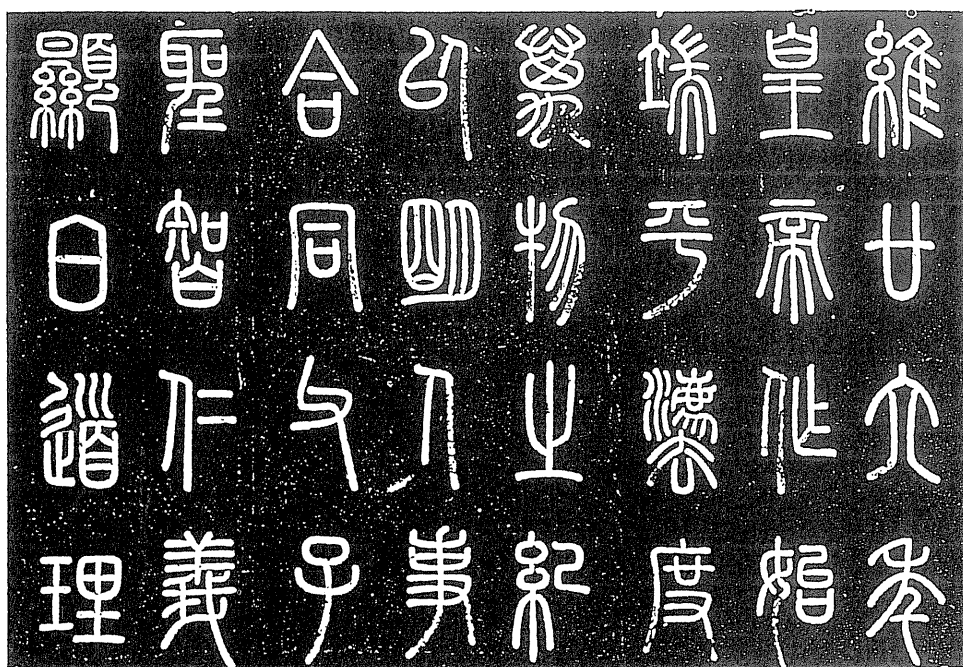 維廿六年
皇帝作始
端平灋度
萬物之紀
以明人事
合同父子
聖智仁義
顯白道理